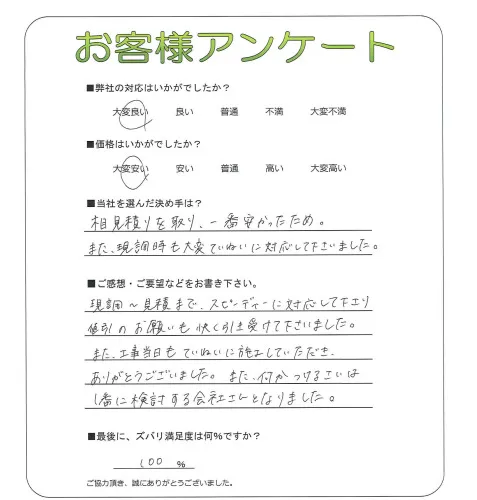 お客様アンケート
■弊社の対応はいかがでしたか?
大変良い 良い 普通 不満 大変不満
■価格はいかがでしたか?
大変安い 安い 普通 高い 大変高い
■当社を選んだ決め手は?
相見積りを取り、一番安かったため。
また、現調時も大変ていねいに対応して下さいました。
■ご感想・ご要望などをお書き下さい。
現調〜見積まで、スピーディーに対応して下さり
値引のお願いも快く引き受けて下さいました。
また、工事当日もていねいに施工していただき、
ありがとうございました。また、何かつけるさいは
1番に検討する会社さんとなりました。
■最後に、ズバリ満足度は何%ですか?
100 %
ご協力頂き、誠にありがとうございました。